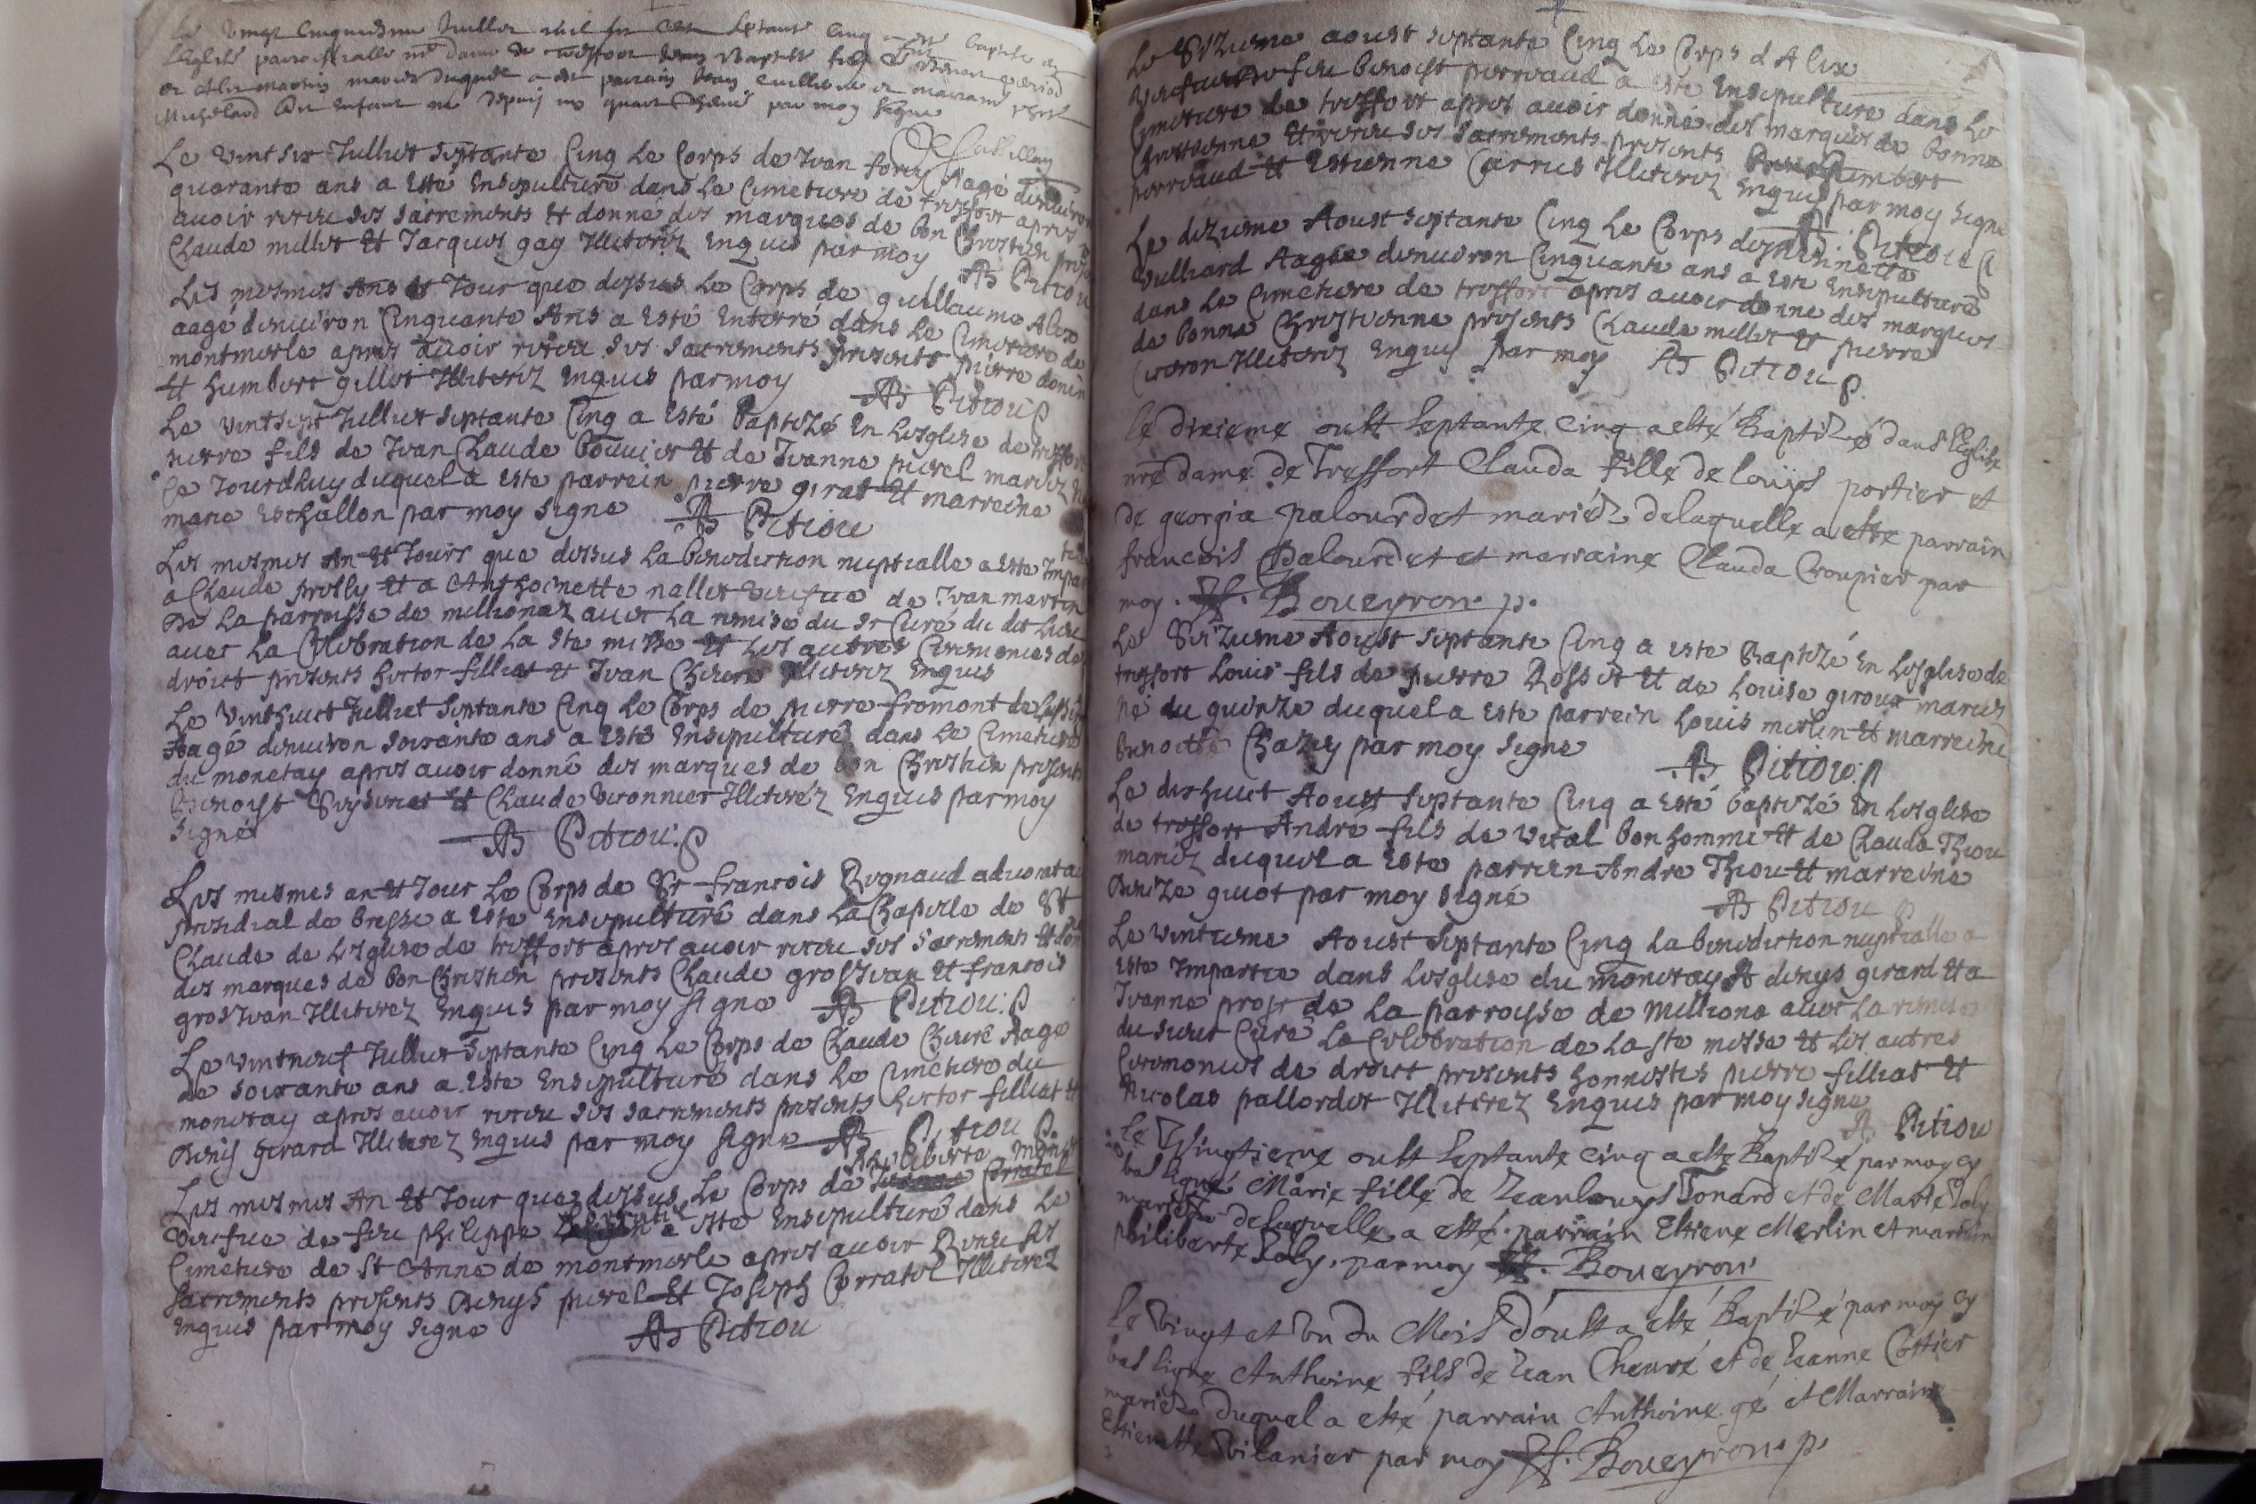 Le vingt cinquiesme Juillet mil six cent septante cinq a esté baptisé en
l'Eglise parroissialle nre dame de Treffort Jean Baptiste fils de
et marraine
par moy signé
Le vint six Julliet septante Cinq Le Corps de Jvan aagé denviron
quarante ans a Esté Ensepulturé dans Le Cimetiere de treffort apres
auoir receu ses sacrements et donné des marques de bon Chrestien
Claude millet et Jacques gay Illiterez Enquis par moy
AB Pitiou
Les mesmes Ans et Jour que dessus Le Corps de guillaume Alex
aagé denuiron Cinquante Ans a Esté Enterré dans Le Cimetiere de
montmerle apres auoir receu ses sacrements presents pierre donin
et humbert gillet Illiterez Enquis par moy AB Pitiou p
Le vintsept Julliet septante Cinq a Esté baptizé En Lesglise de treffort
pierre fils de Jvan Claude bouuier et de Jvanne purel mariez
ce Jourdhuy duquel a Este parrein pierre giras et marreine
marie Eschallon par moy signe AB Pitiou
Les mesmes An et Jours que dessus La benediction nuptialle a este Impar
a Claude prolly et a Anthoinette nallet veufue de Jvan martin
De La parroisse de millionaz auec La remise du Sr Curé du dit Lieu
auec La Celebration de La Ste messe et Les autres Ceremonies de
droict presents hector filliat et Jvan Illiterez Enquis
Le vinthuict Julliet septante Cinq Le Corps de pierre fromont de
Aagé denuiron soixante ans a Esté Ensepulturé dans Le Cimetiere
du monetay apres auoir donné des marques de bon Chrestien presents
Benoist et Claude Veronnier Illiterez Enquis par moy
signé AB Pitiou. p
Les mesmes an et Jour Le Corps de Sr francois Regnaud aduocat au
presidial de bresse a Este Ensepulturé dans La Chapelle de St
Claude de Lesglise de treffort apres auoir receu ses sacrements et donne
des marques de bon Chrestien presents Claude grosJvan et francois
grosJvan Illiterez Enquis par moy signe AB Pitiou. p
Le vintneuf Julliet septante Cinq Le Corps de Claude Cheuré Aagé
de soixante ans a Este Ensepulturé dans Le Cimetiere du
monetay apres auoir receu ses sacrements presents hector filliat et
Denis girard Illiterez Enquis par moy signe AB Pitiou p.
Les mesmes An et Jour que dessus Le Corps de
veufue de feu philippe a este Ensepulturé dans Le
Cimetiere de St Anne de montmerle apres auoir Receu ses
sacrements presents Denys purel et Joseph Corratel Illiterez
Enquis par moy signe AB Pitiou
Le Sixiesme aoust septante Cinq Le Corps d Alix
veufue de feu benoist perroaud a este Ensepulturé dans Le
Cimetiere de treffort apres auoir donné des marques de bonne
Chrestienne et receu ses sacrements presents humbert
perroaud et Estienne Carrus Illiterez Enquis par moy signe
AB Pitiou p
Le dizieme Aoust septante Cinq Le Corps
vulliard Aagée denuiron Cinquante ans a este Ensepulturé
dans Le Cimetiere de treffort apres auoir donne des marques
de bonne Chrestienne presents Claude millet et pierre
Illiterez Enquis par moy AB Pitiou p.
Le dixieme oust septante cinq a esté Baptisé dans l'Eglise
nre dame de Treffort Clauda fille de louijs portier et
de georgia palourdet mariéz delaquelle a este parrain
francois Palourdet et marraine Clauda Croupier par
moy. Boueyron. p.
Le Seizieme Aoust septante Cinq a este Baptizé En Lesglise de
treffort Louis fils de pierre Rosset et de Louise giroux mariez
né du quinze duquel a Este parrein Louis merlin et marreine
Benoitte Chazey par moy signe AB Pitiou. p
Le dixhuict Aoust septante Cinq a Esté baptizé En Lesglise
de treffort André fils de vital bonhomme et de Claude Thiou
mariez duquel a Este parrein Andre Thiou et marreine
Denize guiot par moy signé AB Pitiou p
Le vintieme Aoust septante Cinq La benediction nuptialle a
este Impartie dans Lesglise du monetay A denys girard et a
Jvanne de La parroisse de Milliona auec La remise
du sieur Curé Le Celebration de La ste messe et Les autres
Ceremonies de droict presents honnestes pierre filliat et
Nicolas pallordet Illiterez Enquis par moy signe
AB Pitiou
Le Vingtieme oust septante cinq a esté Baptisé par moy cy
bas signé Marie fille de Jean louys Tonard et de Marie Joly
mariez delaquelle a esté parrain Estiene Merlin et marrain
philiberte Joly. par moy Boueyron
Le vingt et vn du Mois d'oust a esté Baptisé par moy cy
bas signe Anthoine fils de Jean Cheuré et de Jeanne Cottier
mariez duquel a esté parrain Anthoine gé et Marraine
Estienette vilanier par moy Boueyron. p.